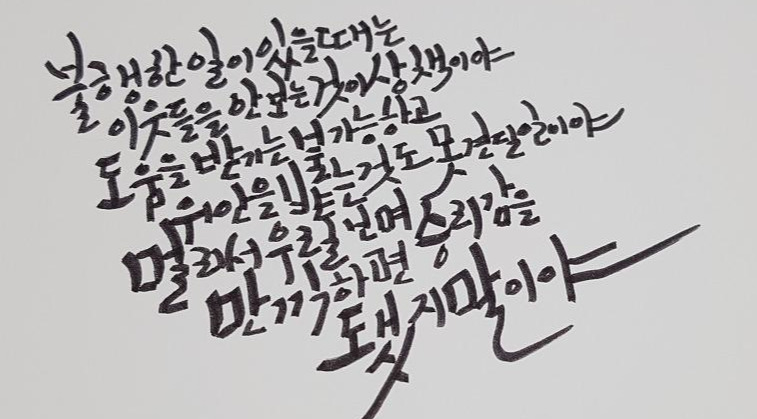 불행한 일이 있을 때는
이웃들을 안 보는 것이 상책이야
도움을 받기는 불가능하고
위안을 받는 것도 못견딜 일이야
멀리서 우릴 보며 승리감을
만끽하면
됐지 말이야